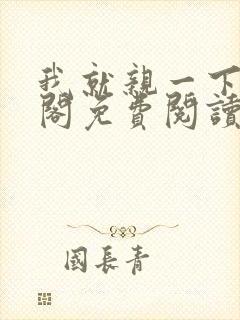 我就親一下
閣免費閱讀
國長青